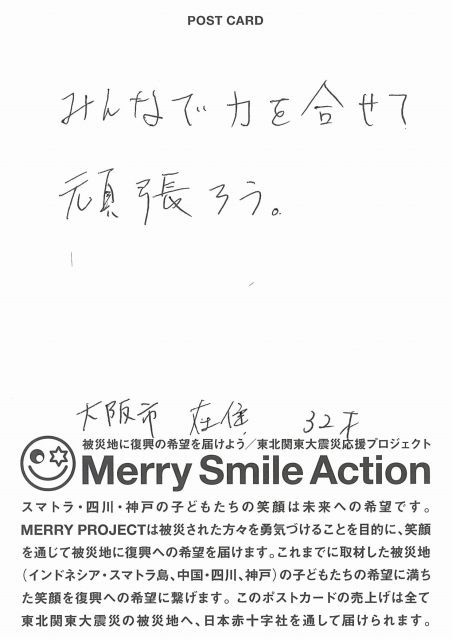 POST CARD
みんなで力を合せて
頑張ろう。
大阪市 在住 32才
被災地に復興の希望を届けよう／東北関東大震災応援プロジェクト
Merry Smile Action
スマトラ・四川・神戸の子どもたちの笑顔は未来への希望です。
MERRY PROJECTは被災された方々を勇気づけることを目的に、笑顔
を通じて被災地に復興への希望を届けます。これまでに取材した被災地
（インドネシア・スマトラ島、中国・四川、神戸）の子どもたちの希望に満ち
た笑顔を復興への希望に繋げます。このポストカードの売上げは全て
東北関東大震災の被災地へ、日本赤十字社を通して届けられます。